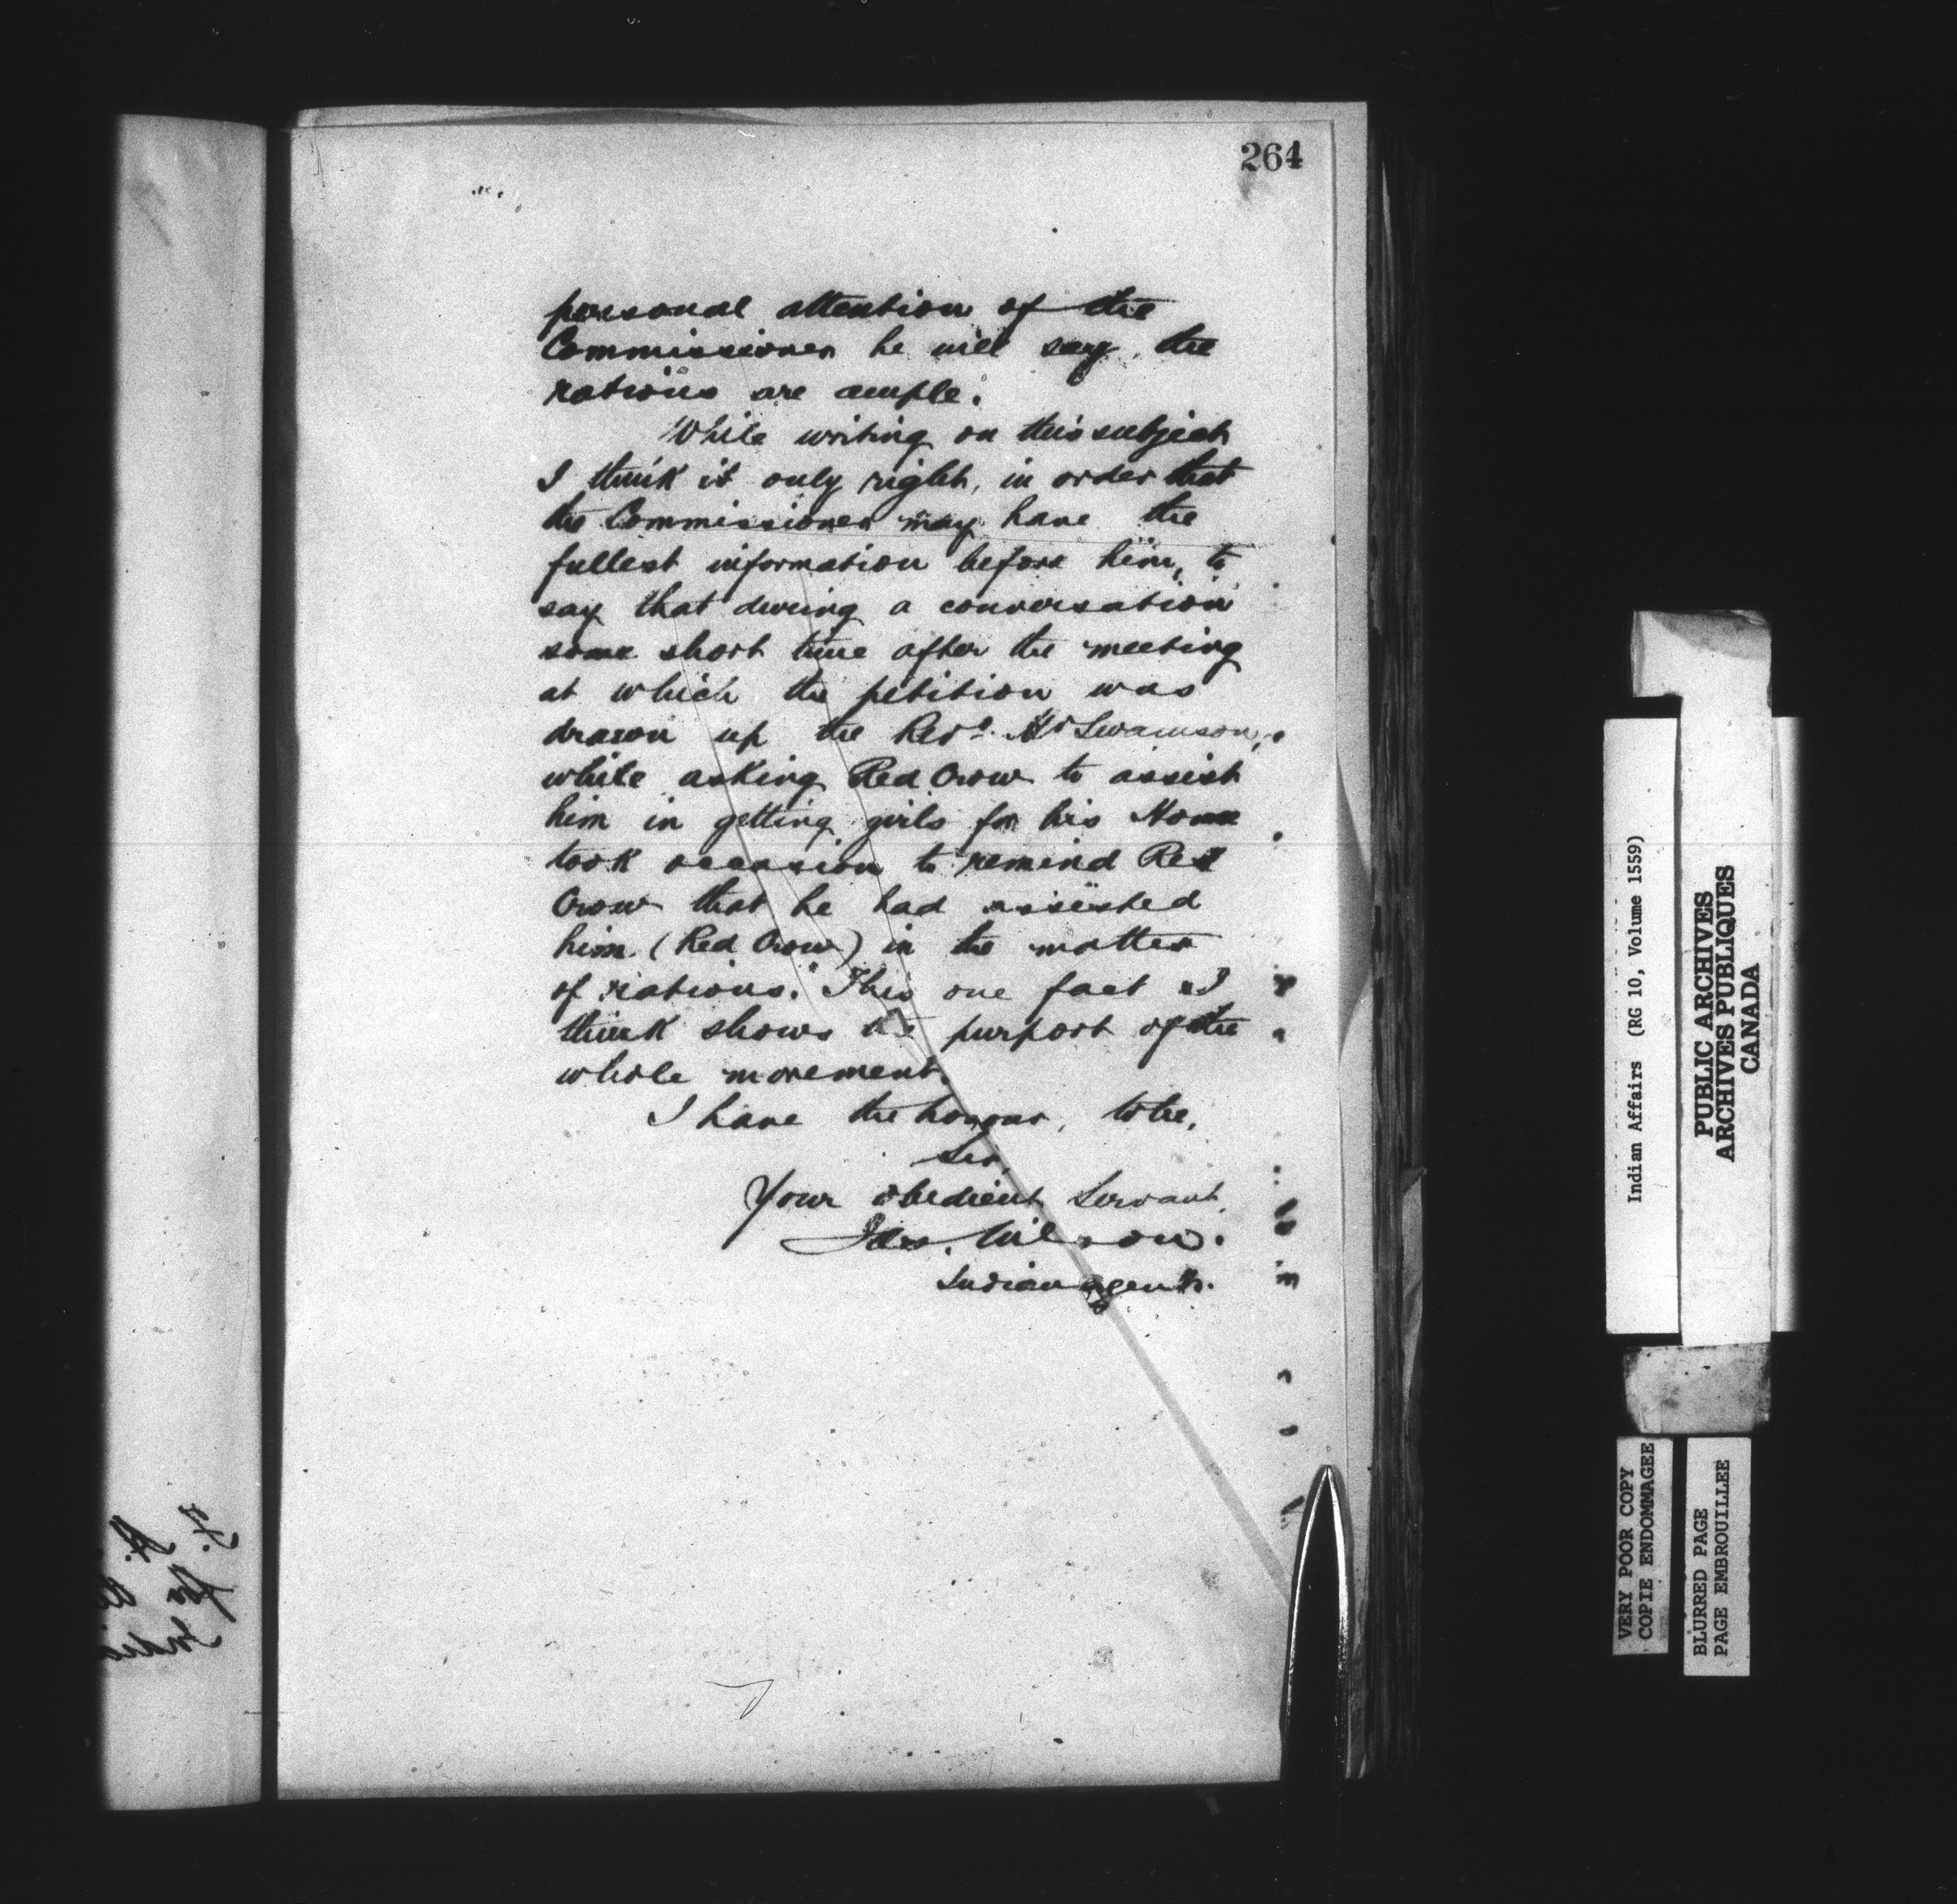 264
personal attention of the
Commissioner he will say, the
rations are ample.
While writing on this subject
I think it only right, in order that
the Commissioner may have the
fullest information before him, to
say that during a conversation
some short time after the meeting
at which the petition was
drawn up the Revd. Mr Swainson,
while asking Red Crow to assist
him in getting girls for his Home
took occasion to remind Red
Crow that he had assisted
him (Red Crow) in the matter
of rations. This one fact I
think shows the purport of the
whole movement.
I have the honour, to be,
Sir,
Your obedient Servant,
Jas. Wilson.
Indian Agent.
Indian Affairs (RG 10, Volume 1559)
PUBLIC ARCHIVES
ARCHIVES PUBLIQUES
CANADA
VERY POOR COPY
COPIE ENDOMMAGEE
BLURRED PAGE
PAGE EMBROUILLEE